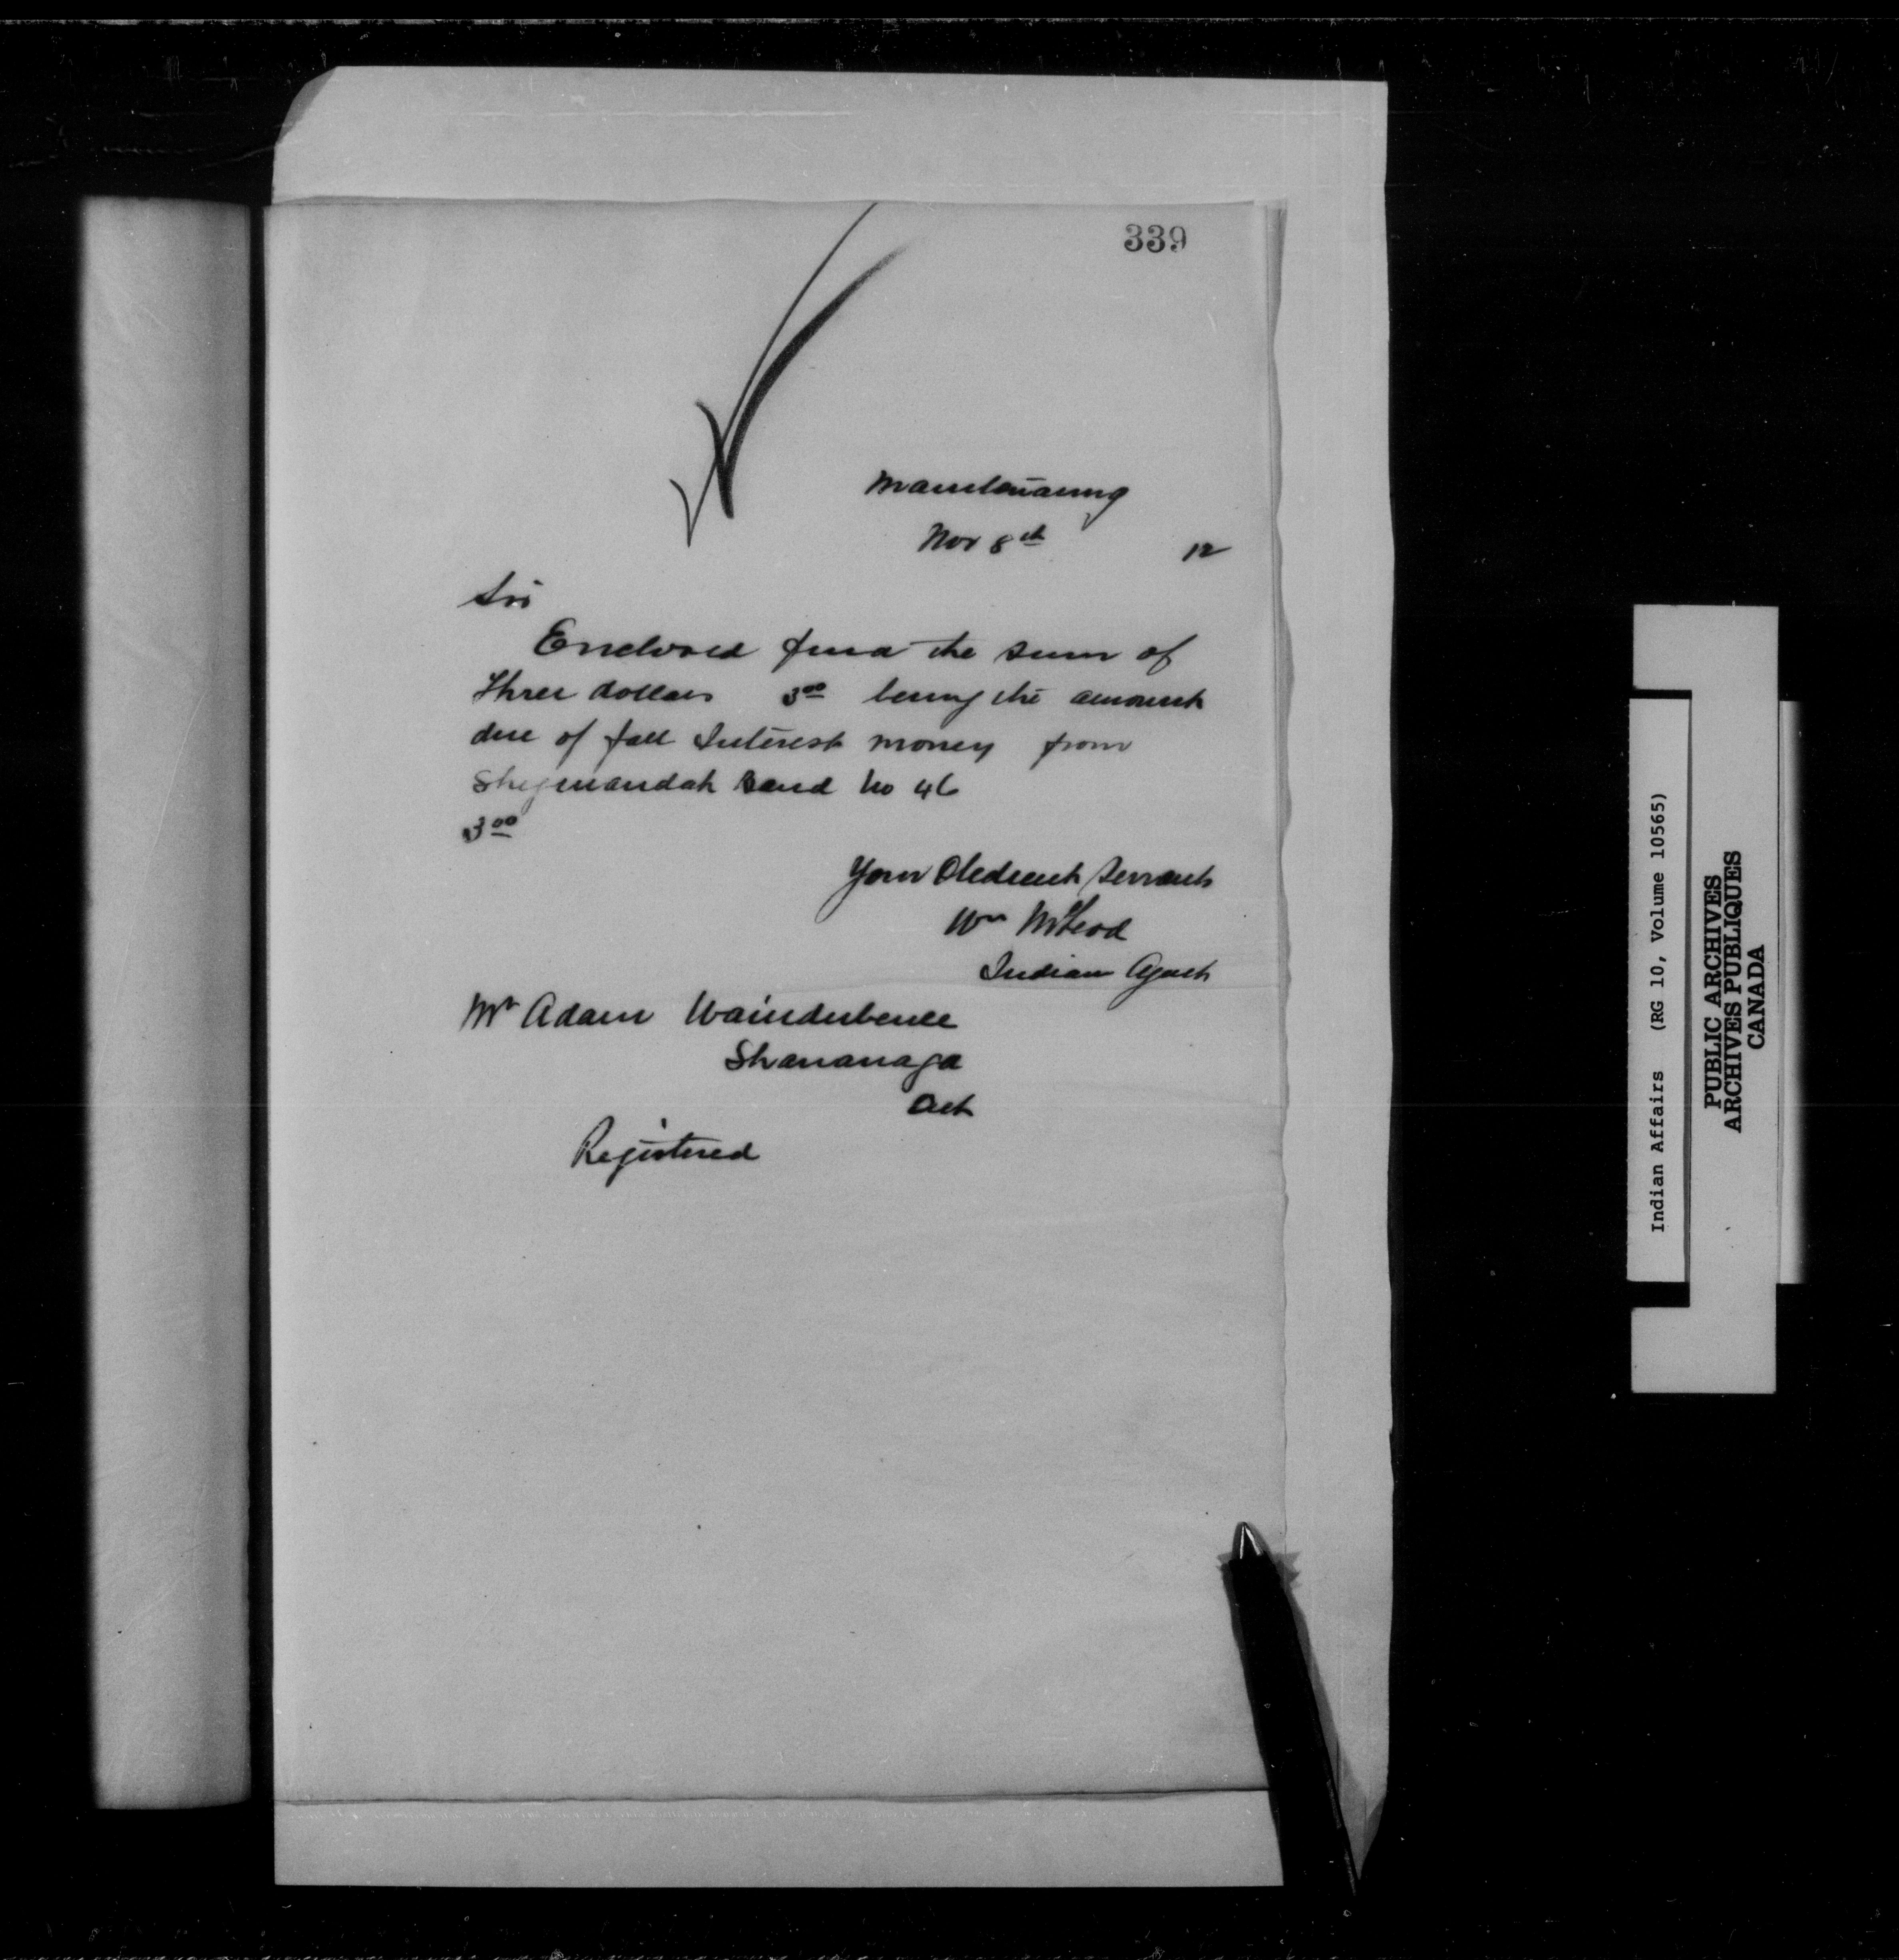 339
Manitowaning
Nov 8th 12
Sir
Enclosed find the sum of
Three dollars 3 00 being the amount
due of fall Interest money from
Sheguiandah Band No 46
3 00
Your Obedient Servant
Wm McLeod
Indian Agent
Mr Adam
Shawanaga
Ont
Registered
Indian Affairs (RG 10, Volume 10565)
PUBLIC ARCHIVES
ARCHIVES PUBLIQUES
CANADA